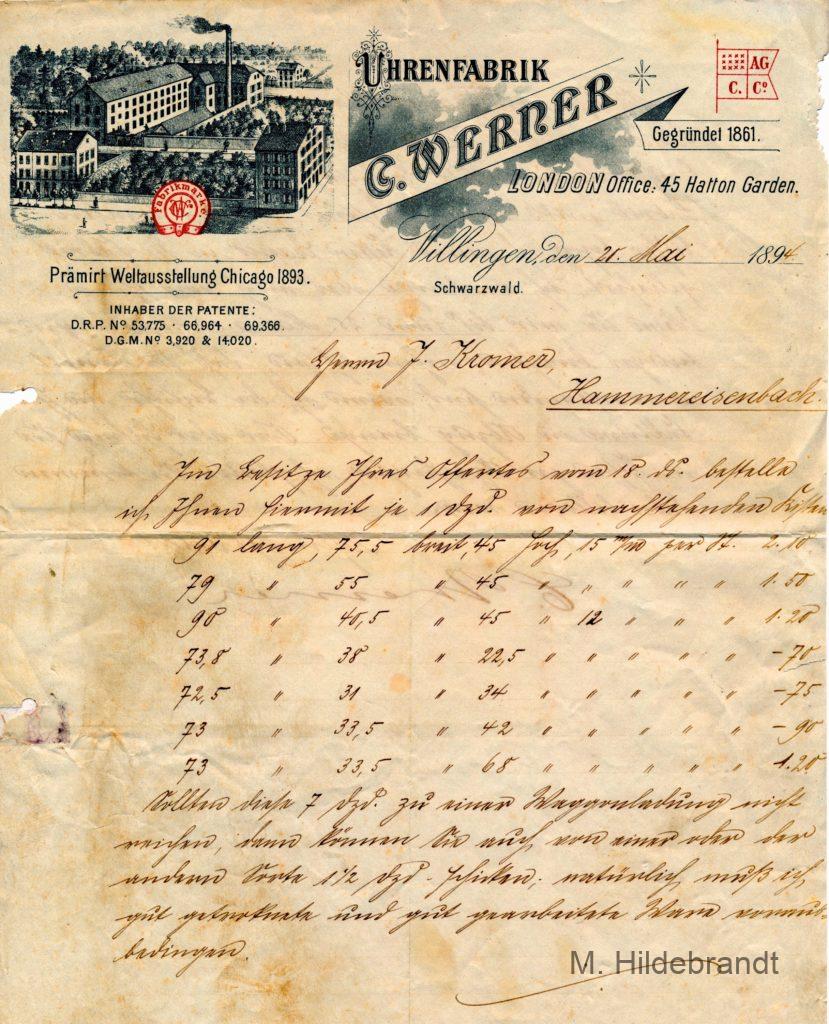 UHRENFABRIK
C. WERNER
AG
C. Co
Gegründet 1861.
LONDON Office: 45 Hatton Garden.
Fabrikmarke
Villingen, den 21. Mai 1894
Schwarzwald.
Prämirt Weltausstellung Chicago 1893.
INHABER DER PATENTE:
D.R.P. No 53,775 · 66,964 · 69,366.
D.G.M. No 3,920 & 14,020.
Herrn J. Kromer,
Hammereisenbach.
Im Besitze Ihres Offertes vom 18. ds. bestelle
ich Ihnen hiermit je 1 Dzd. von nachstehenden Kisten
91 lang, 75,5 breit, 45 hoch, 15 m/m per St. 2.10
79 " 55 " 45 " " " " " 1.50
90 " 40,5 " 45 " 12 " " " 1.20
73,8 " 38 " 22,5 " " " " " -70
72,5 " 31 " 34 " " " " " -75
73 " 33,5 " 42 " " " " " -90
73 " 33,5 " 68 " " " " " 1.20
Sollten diese 7 Dzd. zu einer Waggonladung nicht
reichen, dann können Sie auch von einer oder der
andern Sorte 1 1/2 Dzd. schicken; natürlich muß ich
gut getroknete und gut gearbeitete Ware voraus-
bedingen.
M. Hildebrandt